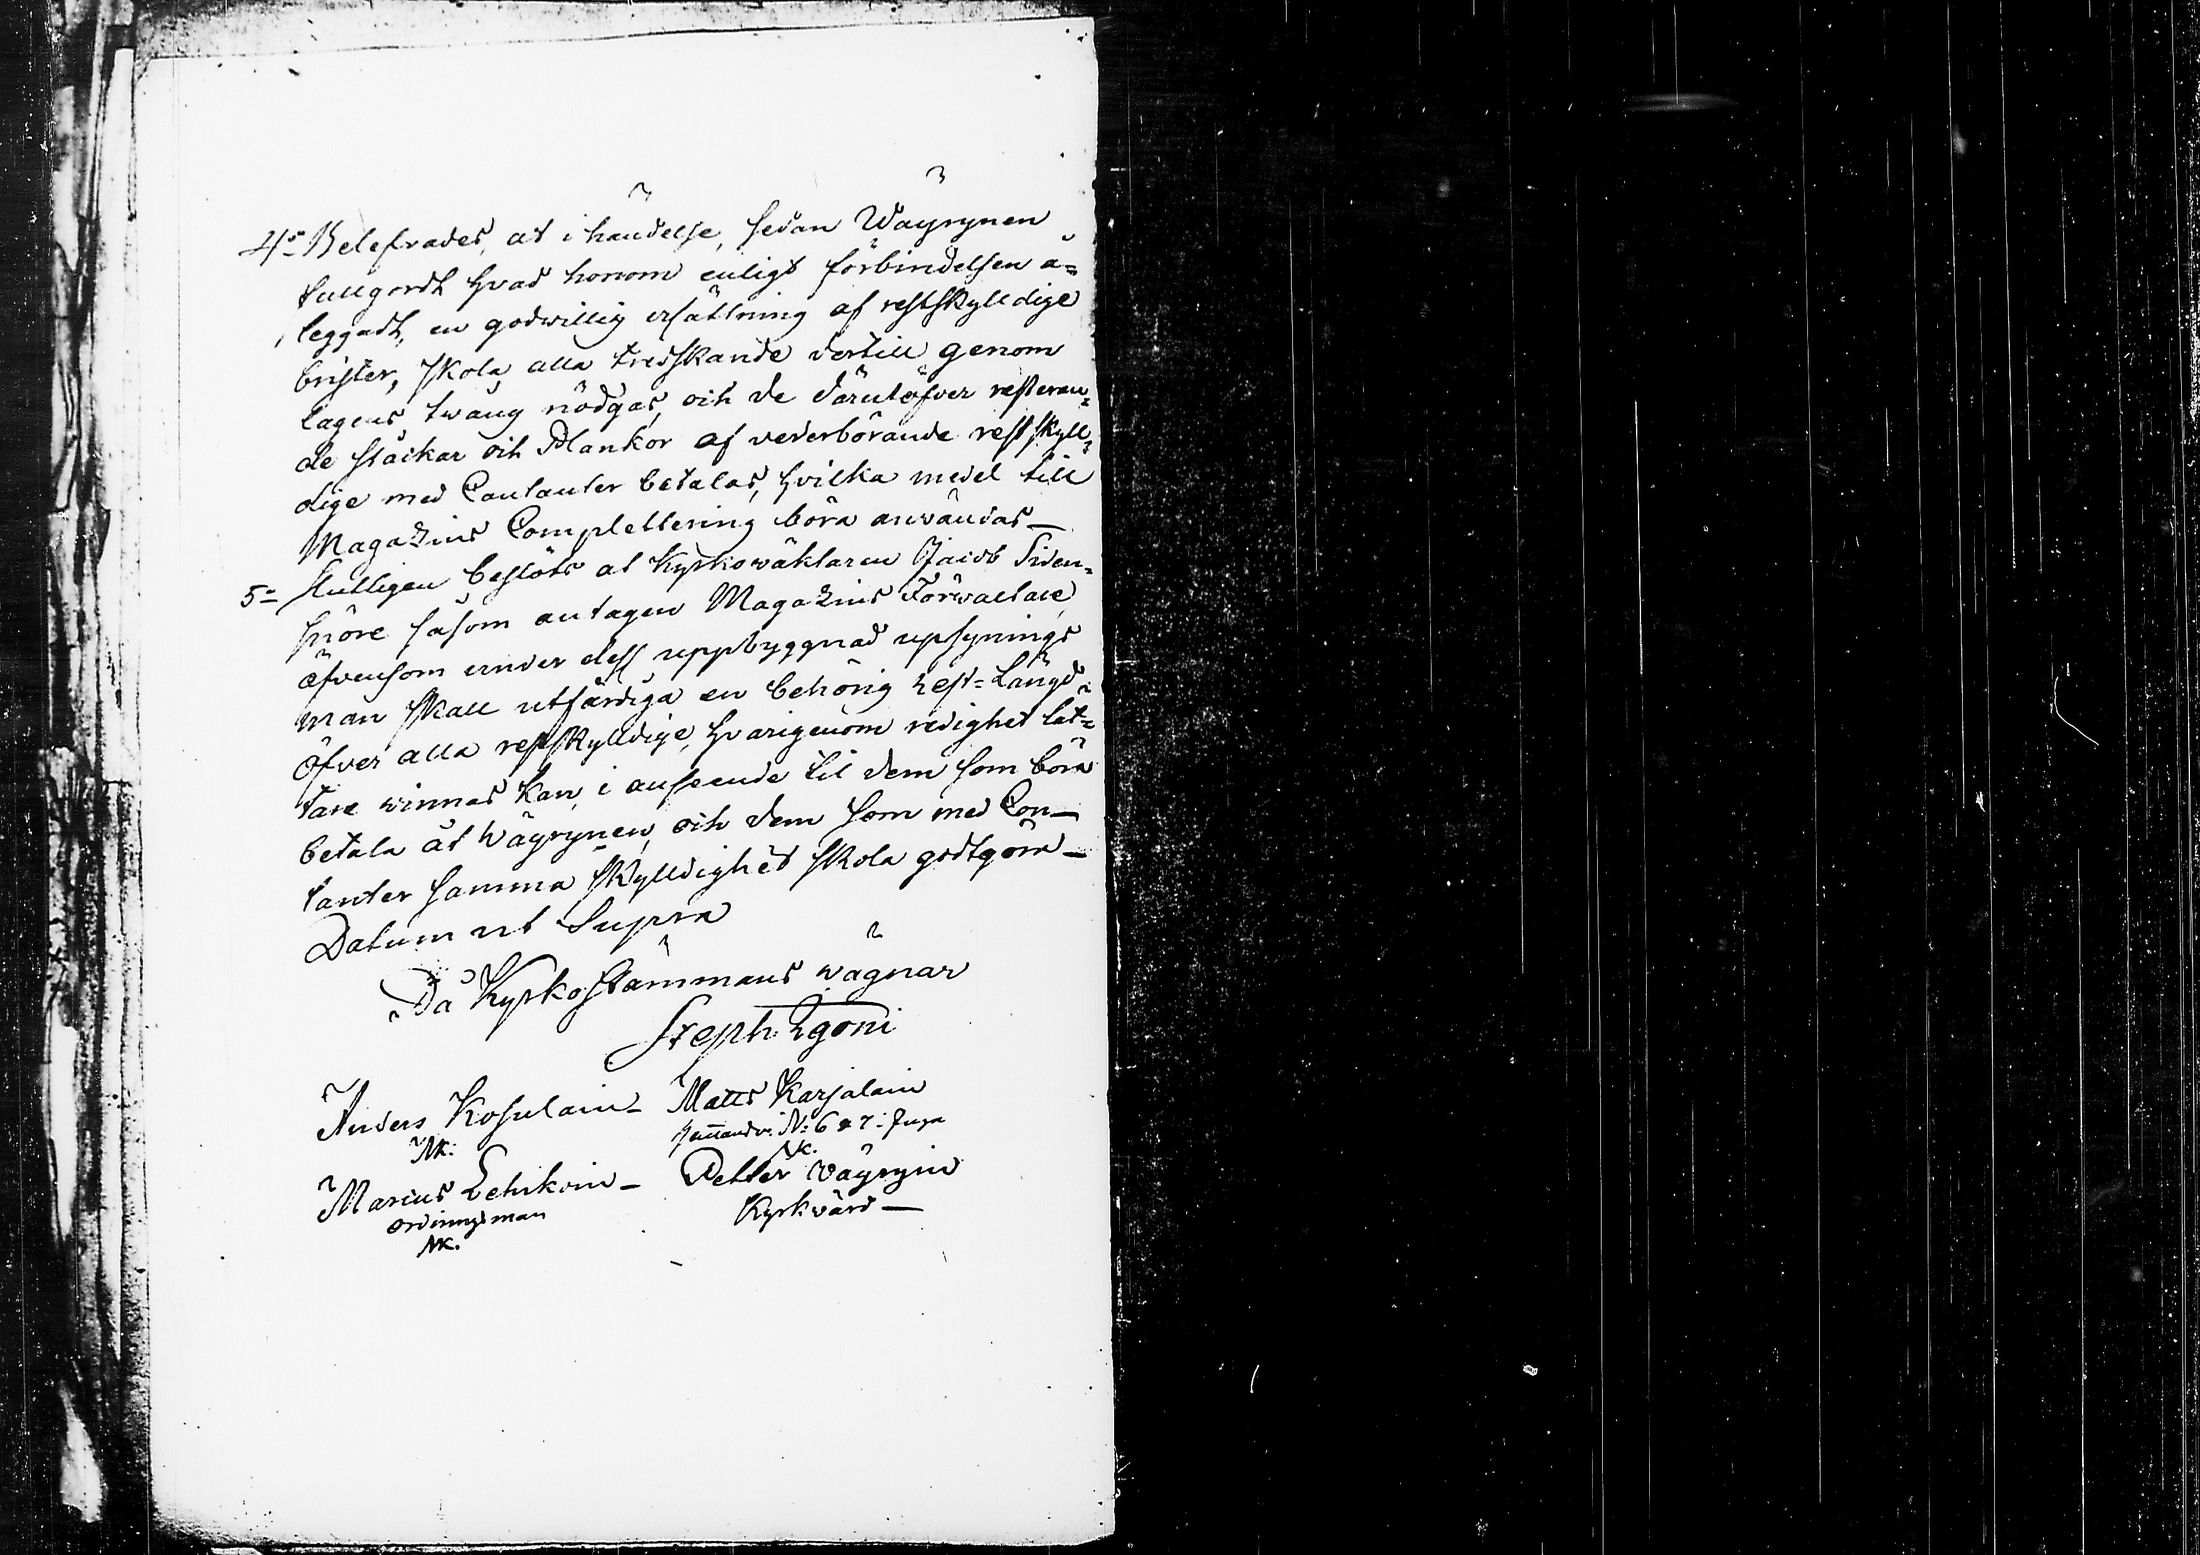 4:o Belefvades, at i händelse, sedan Wäyrynen
fullgordt hvad honom enligt förbindelsen å=
leggadt, en godwillig ersättning af restskylldige
brister, skola alla tredskande dertill genom
lagens twång nödgas, och de därutöfver resteran=
de stäckar och Plankor af vederbörande restskyll=
dige med Contanter betalas, hvilka medel till
Magazins Complettering böra anwändas—
5:o Slutligen beslöts at Kyrkowäktaren Jacob Siden=
snöre såsom antagen Magazins Förwaltare
äfvensom under dess uppbyggnad upsynings
man skall utfärdiga en behörig Rest=Längd
öfver alla restskylldige, hvarigenom redighet lät=
tare winnas kan, i anseende til dem som böra
betala åt Wäyrynen, och dem som med Con—
tanter samma skylldighet skola godtgöra—
Datum ut Supra
På Kyrkostämmans wägnar
Steph:
Anders Kosulain— Matts Karjalain
N: 6 & 7: Juga
Marcus Lehikoin— Petter Wäyryin
Ordningsman Kyrkvärd—